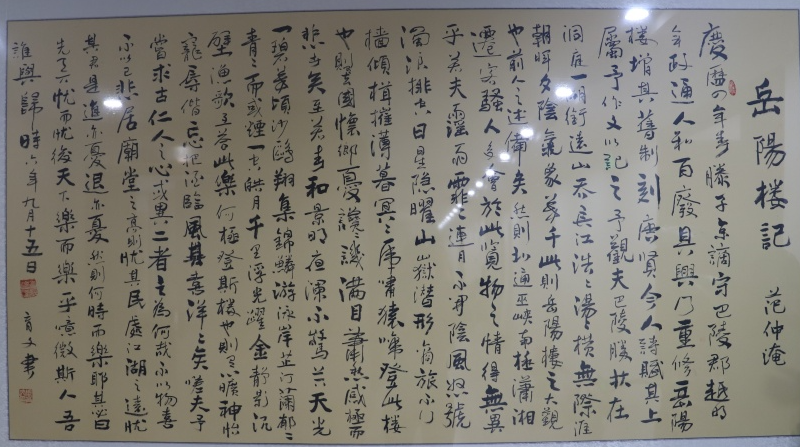 岳陽楼記
范仲淹
慶曆四年春滕子京謫守巴陵郡越明
年政通人和百廢具興乃重修岳陽
樓增其舊制刻唐賢今人詩賦其上
屬予作文以記之予觀夫巴陵勝狀在
洞庭一湖銜遠山吞長江浩々湯々橫無際涯
朝暉夕陰氣象萬千此則岳陽樓之大觀
也前人之述備矣然則北通巫峽南極瀟湘
遷客騷人多會於此覽物之情得無異
乎若夫霪雨霏々連月不開陰風怒號
濁浪排空日星隐曜山嶽潛形商旅不行
檣傾楫摧薄暮冥々虎嘯猿啼登此樓
也則有去國懷鄉憂讒畏譏滿目蕭然感極而
悲者矣至若春和景明波瀾不驚上下天光
一碧萬頃沙鷗翔集錦鱗游泳岸芷汀蘭郁々
青々而或煙一空皓月千里浮光躍金靜影沉
壁漁歌互答此樂何極登斯楼也則有心曠神怡
寵辱偕忘把酒臨風其喜洋々者矣嗟夫予
嘗求古仁人之心或異二者之為何哉不以物喜
不以己悲居廟堂之高則憂其民處江湖之遠則憂
其君是進亦憂退亦憂然則何時而樂耶其必曰
先天下憂而憂後天下樂而樂乎噫微斯人吾
誰與歸時六年九月十五日